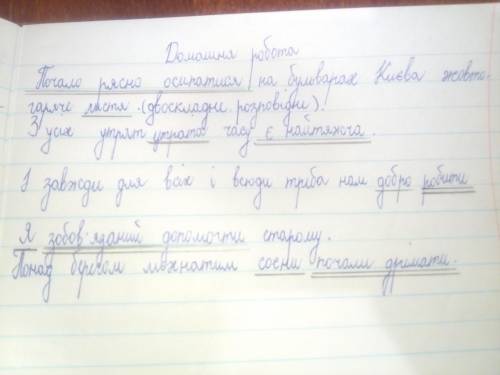 Домашня робота
Почало рясно осипатися на бульварах Києва жовто-
гаряче листя. (двоскладне, розповідне).
З усіх утрат утрата часу є найтяжча.
І завжди для всіх і всюди треба нам добро робити
Я зобов'язаний допомогти старому.
Понад берегом мохнатим сосни почали дрімати.